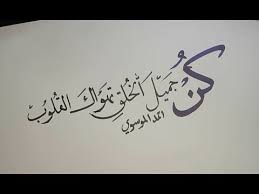 كُن جَمِيلَ الخُلقِ تهواكَ القُلوبُ
الموسوي